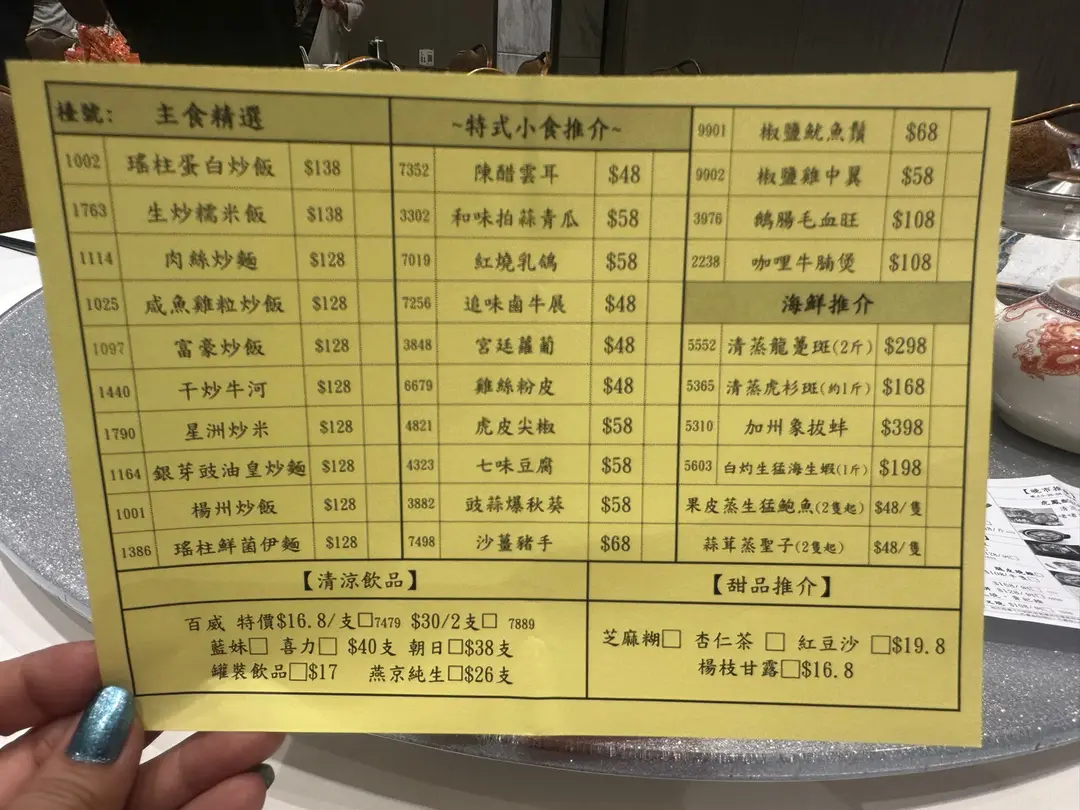 檯號: 主食精選
1002 瑤柱蛋白炒飯 $138
1763 生炒糯米飯 $138
1114 肉絲炒麵 $128
1025 咸魚雞粒炒飯 $128
1097 富豪炒飯 $128
1440 干炒牛河 $128
1790 星洲炒米 $128
1164 銀芽豉油皇炒麵 $128
1001 楊州炒飯 $128
1386 瑤柱鮮菌伊麵 $128
~特式小食推介~
7352 陳醋雲耳 $48
3302 和味拍蒜青瓜 $58
7019 紅燒乳鴿 $58
7256 追味鹵牛展 $48
3848 宮廷蘿蔔 $48
6679 雞絲粉皮 $48
4821 虎皮尖椒 $58
4323 七味豆腐 $58
3882 豉蒜爆秋葵 $58
7498 沙薑豬手 $68
9901 椒鹽魷魚鬚 $68
9902 椒鹽雞中翼 $58
3976 鵝腸毛血旺 $108
2238 咖哩牛腩煲 $108
海鮮推介
5552 清蒸龍躉斑(2斤) $298
5365 清蒸虎杉斑(約1斤) $168
5310 加州象拔蚌 $398
5603 白灼生猛海生蝦(1斤) $198
果皮蒸生猛鮑魚(2隻起) $48/隻
蒜茸蒸聖子(2隻起) $48/隻
【清涼飲品】
百威 特價$16.8/支□7479 $30/2支□ 7889
藍妹□ 喜力□ $40支 朝日□$38支
罐裝飲品□$17 燕京純生□$26支
【甜品推介】
芝麻糊□ 杏仁茶 □ 紅豆沙 □$19.8
楊枝甘露□$16.8